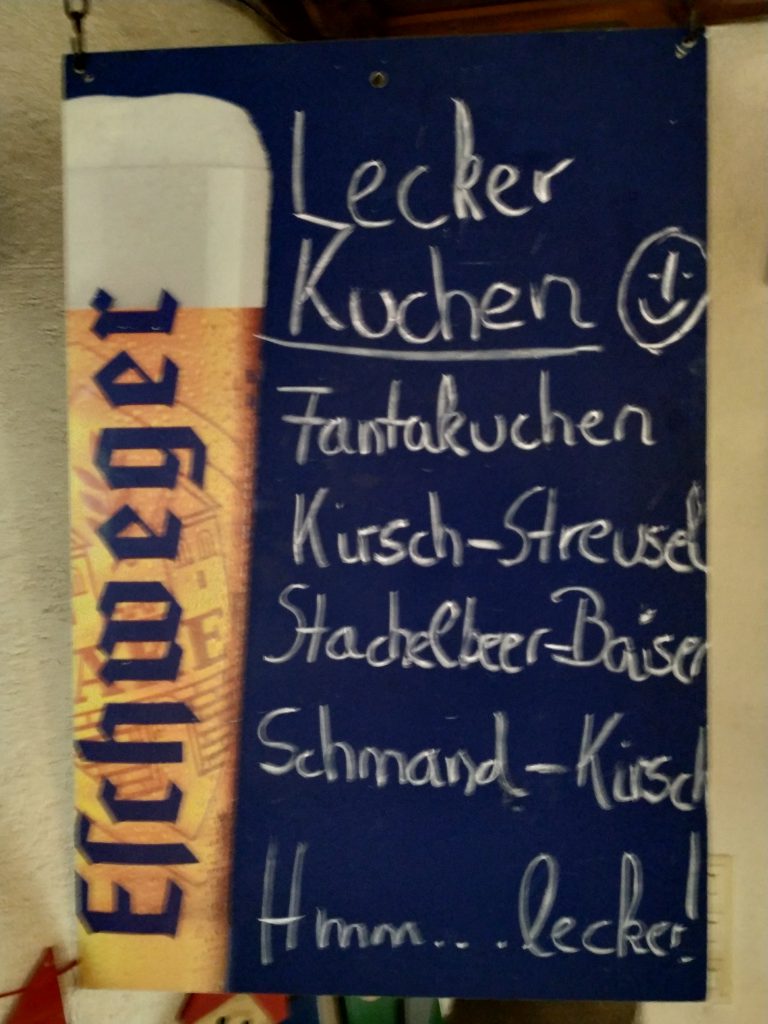 Lecker
Kuchen
Fantakuchen
Kirsch-Streusel
Stachelbeer-Baiser
Schmand-Kirsch
Hmm....lecker!
Eschweger